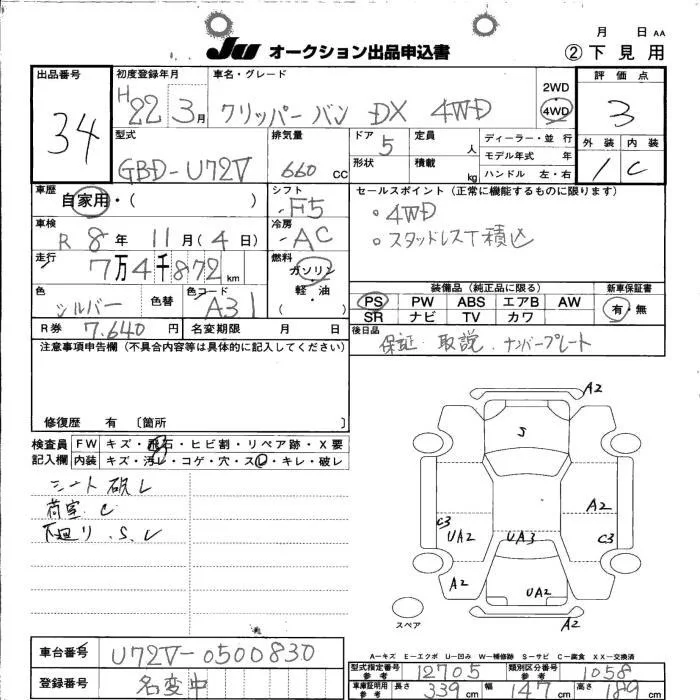 月 日 AA
JU オークション出品申込書
② 下見用
出品番号 34
初度登録年月 H22 3月
車名・グレード クリッパーバン DX 4WD
2WD
4WD
評価点 3
型式 GBD-U72V
排気量 660 cc
ドア 5
定員 人
形状
積載 kg
ディーラー・並 行
モデル年式 年
ハンドル 左・右
外装 内装
/ C
車歴 自家用・( )
シフト F5
セールスポイント (正常に機能するものに限ります)
。4WD
。スタッドレスT積込
車検 R 8年 11月(4日)
冷房 AC
走行 7万4千872km
燃料 ガソリン
軽・油
( )
色 シルバー 色替
色コード A31
装備品 (純正品に限る)
新車保証書
PS PW ABS エアB AW
有・無
SR ナビ TV カワ
R券 7.640円 名変期限 月 日
後日品 保証. 取説. ナンバープレート
注意事項申告欄 (不具合内容等は具体的に記入してください)
修復歴 有 〔箇所 〕
検査員 FW キズ・飛石・ヒビ割・リペア跡・X要
記入欄 内装 キズ・汚レ・コゲ・穴・スレ・キレ・破レ
荷室 C
下廻り .S.
A2
S
A2
C3
UA2
UA3
C3
A2
UA2
A2
スペア
A-キズ E-エクボ U-凹み W-補修跡 S-サビ C-腐食 XX-交換済
車台番号 U72V-0500830
登録番号 名変中
型式指定番号 参考 12705
類別区分番号 参考 1058
車庫証明用 参考 長さ 339cm 幅 147cm 高さ 189cm